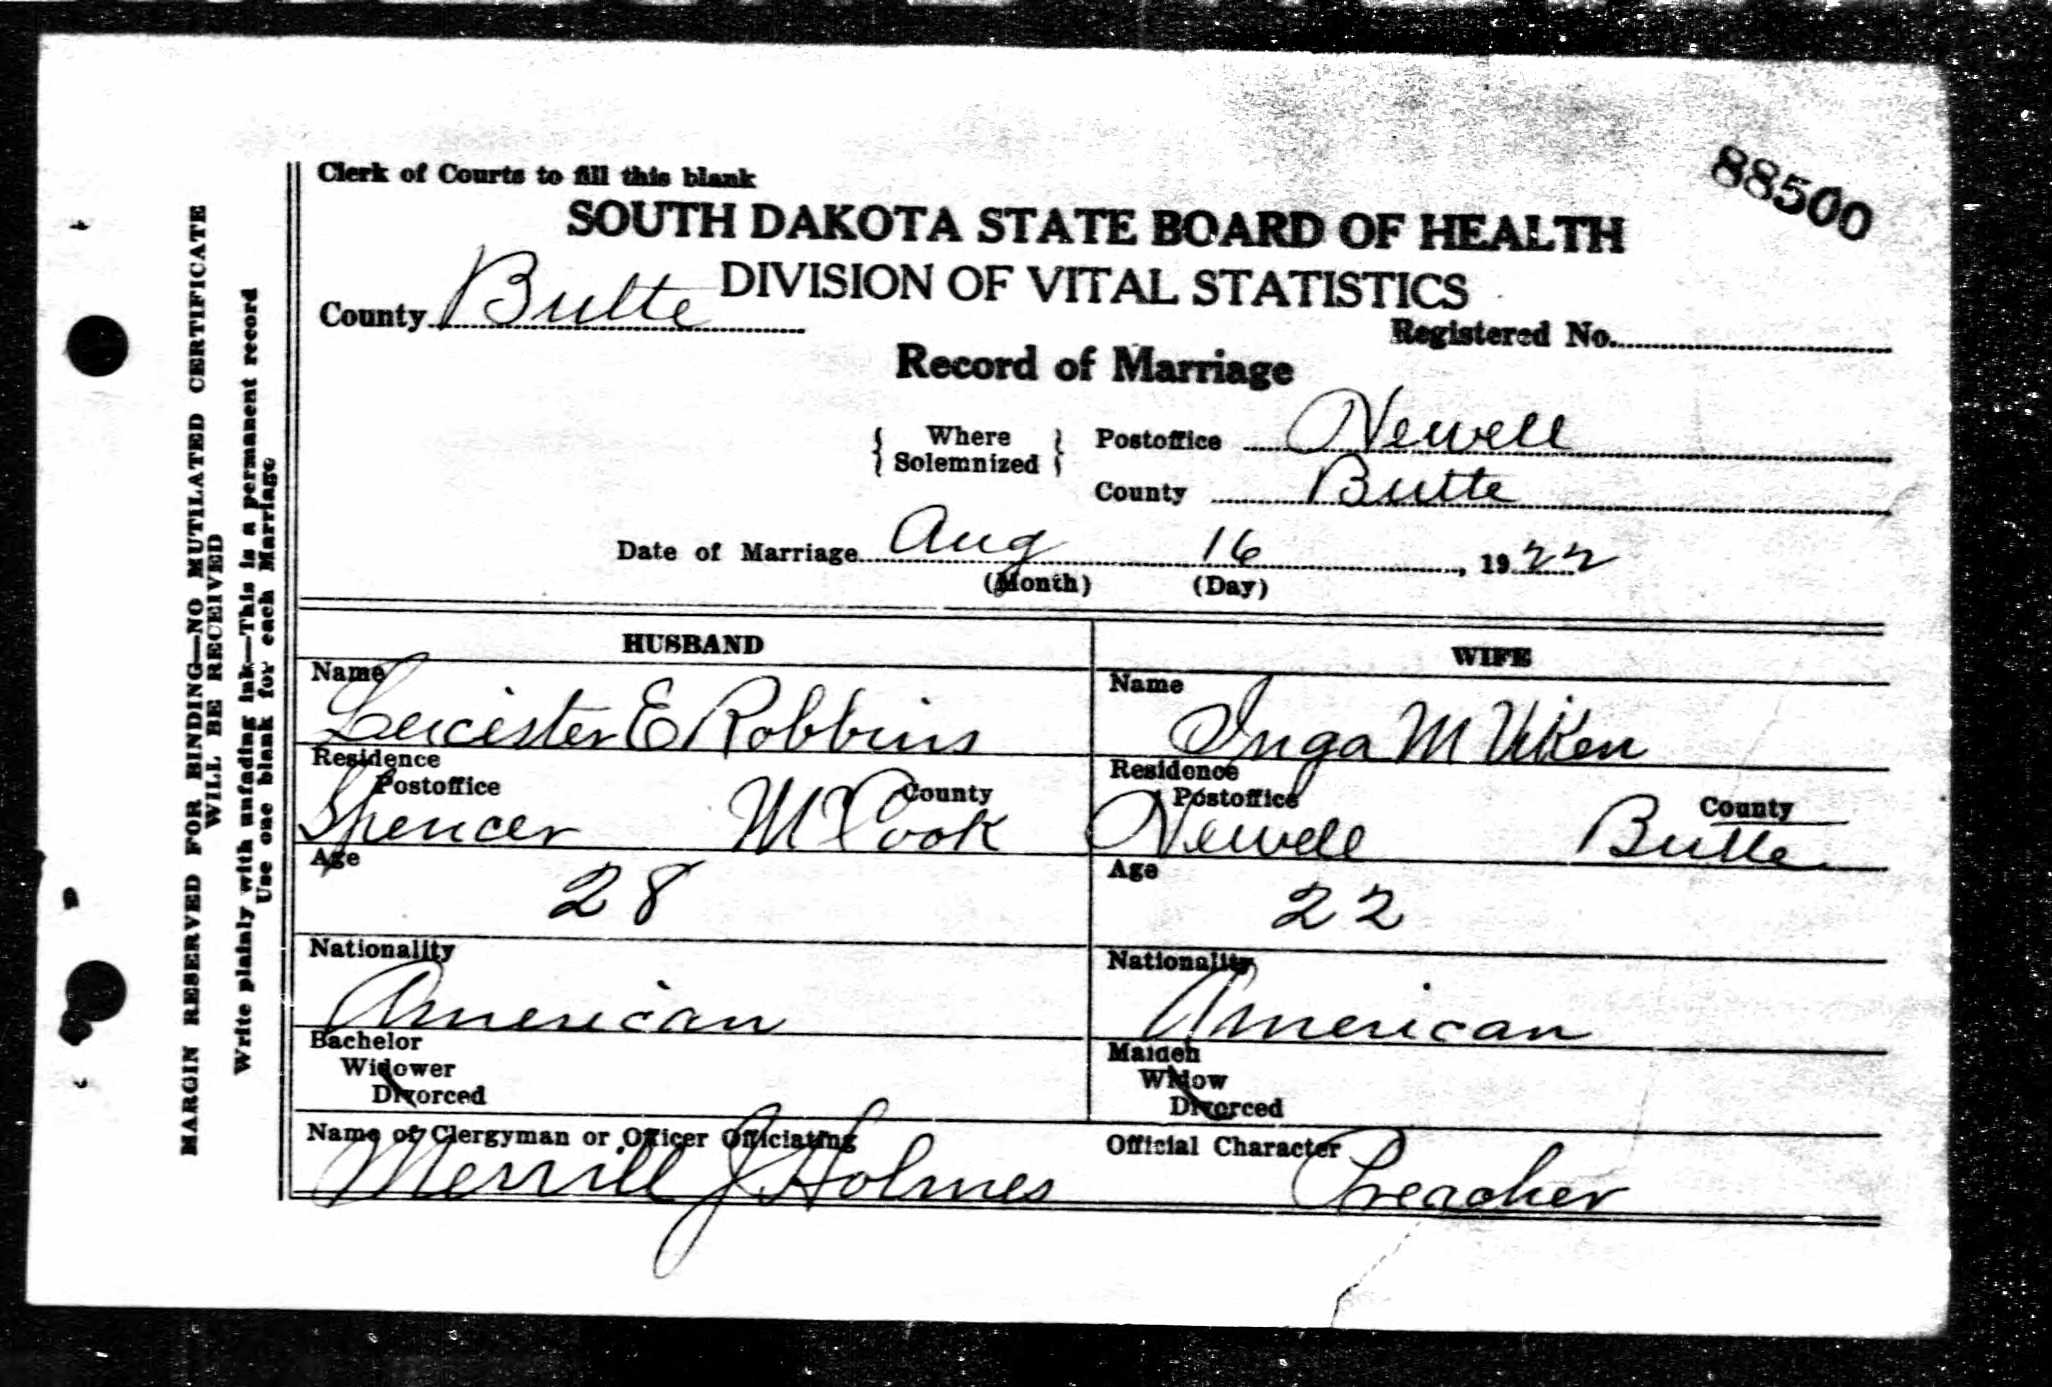 88500
Clerk of Courts to fill this blank
SOUTH DAKOTA STATE BOARD OF HEALTH
DIVISION OF VITAL STATISTICS
County Butte
Registered No.
Record of Marriage
Where Solemnized
Postoffice Newell
County Butte
Date of Marriage Aug 16, 1922
(Month) (Day)
HUSBAND
Name
Leicester E Robbins
Residence
Postoffice County
Spencer McCook
Age
28
Nationality
American
Bachelor
Widower
Divorced
WIFE
Name
Inga M Viken
Residence
Postoffice County
Newell Butte
Age
22
Nationality
American
Maiden
Widow
Divorced
Name of Clergyman or Officer Officiating
Merrill J Holmes
Official Character
Preacher
MARGIN RESERVED FOR BINDING—NO MUTILATED CERTIFICATE
WILL BE RECEIVED
Write plainly with unfading ink—This is a permanent record
Use one blank for each Marriage